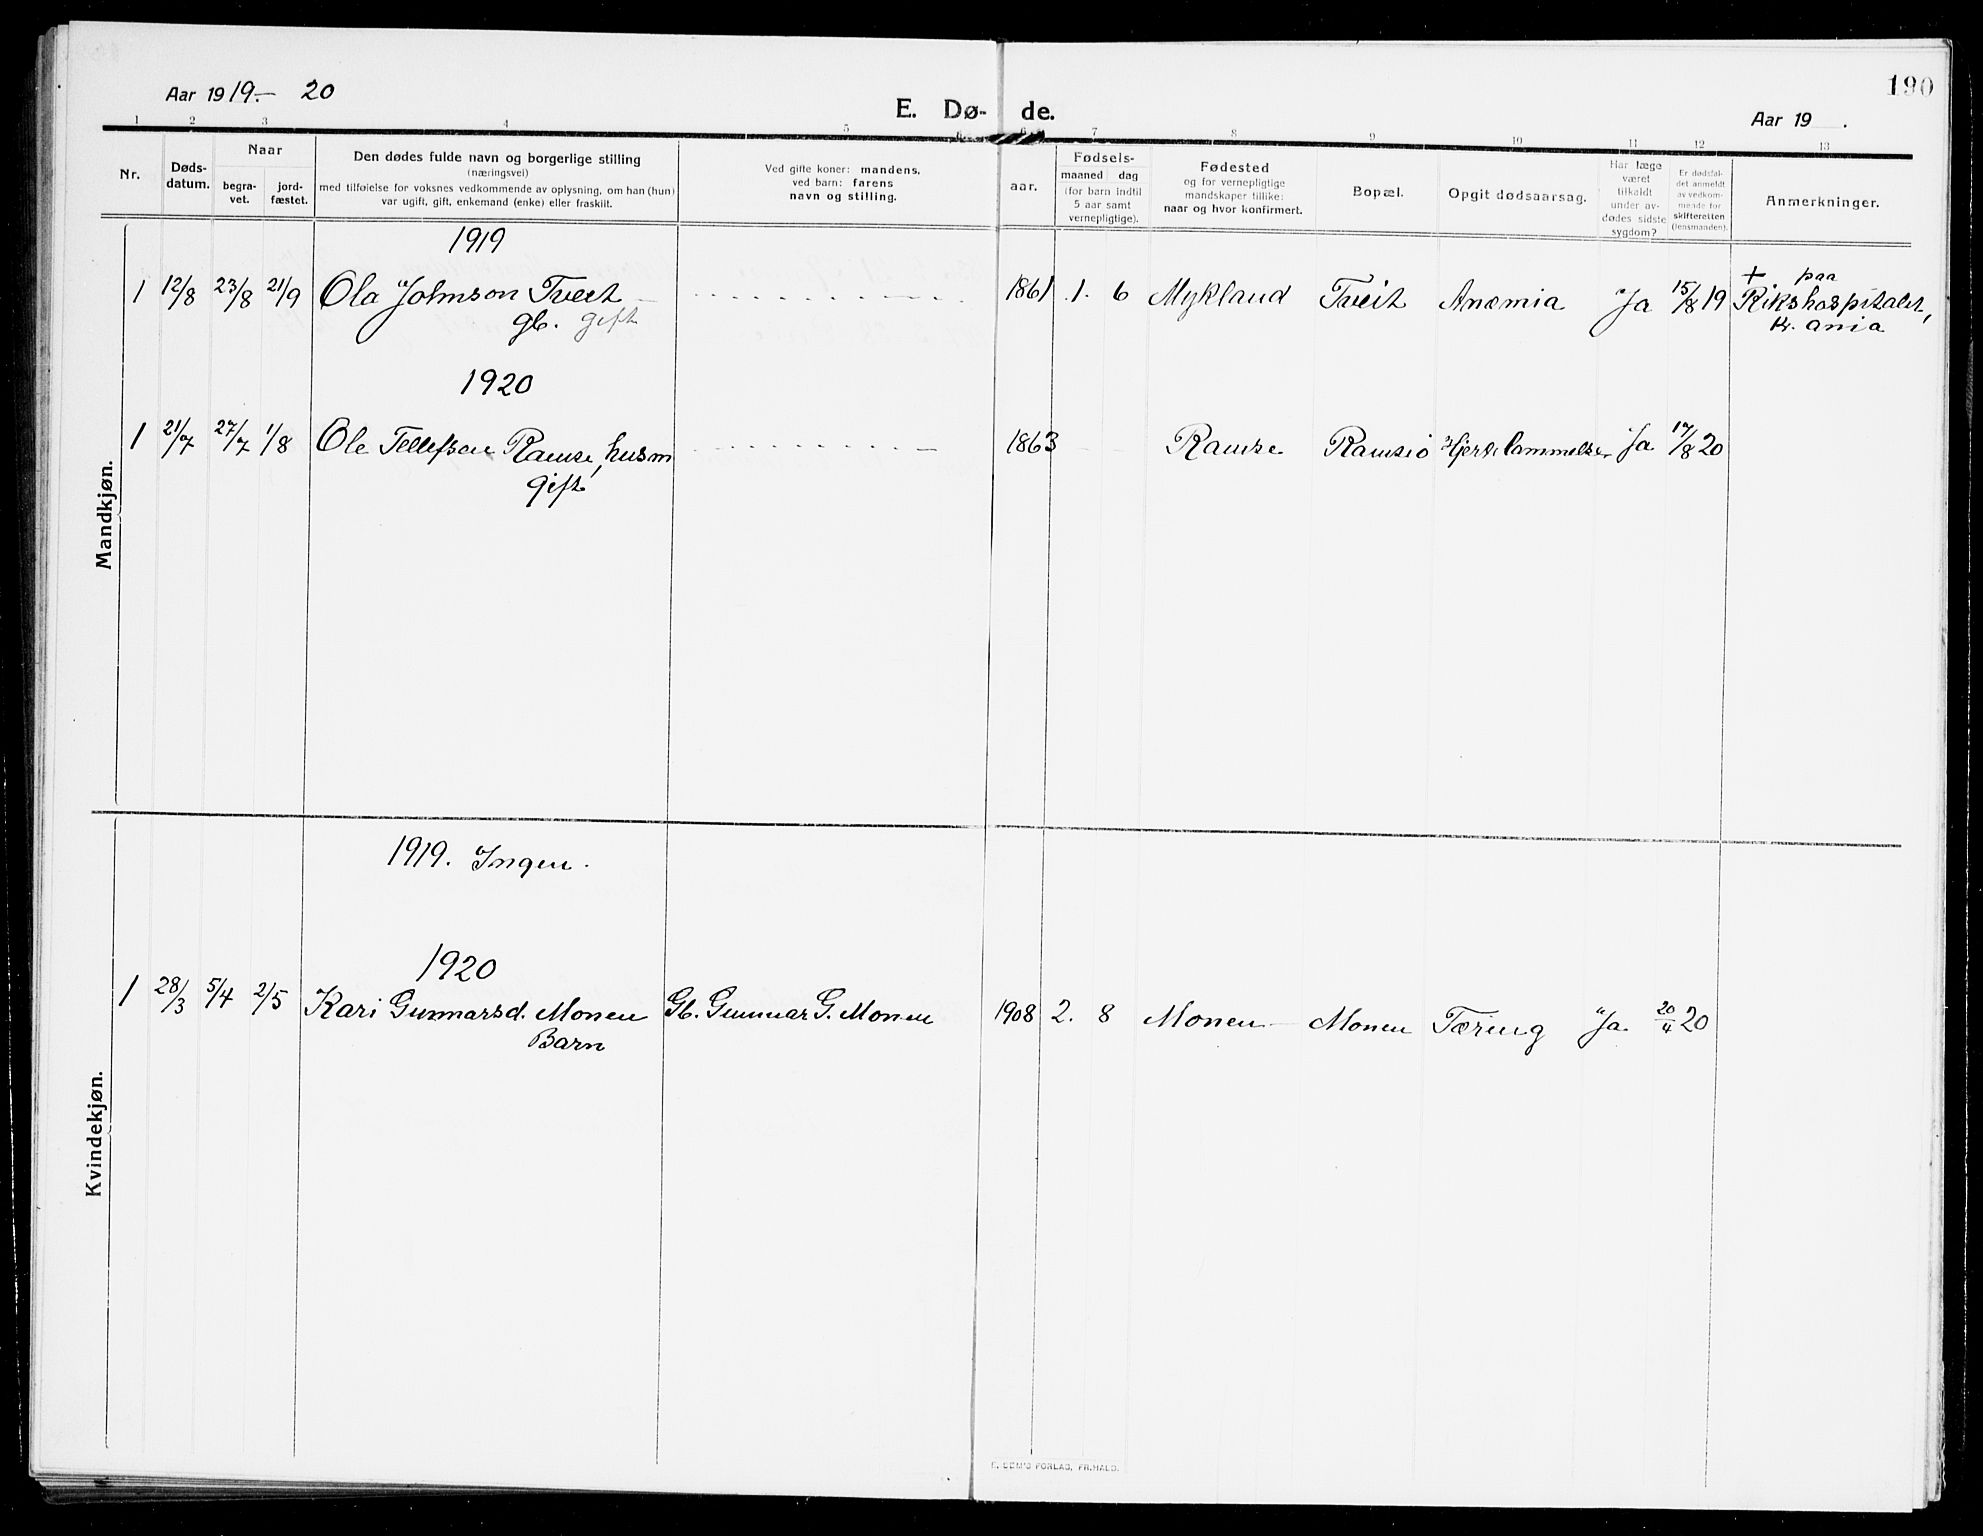 190
Aar 1919.– 20
E. Dø- de.
Aar 19 .
1 2 3 4 5 6 7 8 9 10 11 12 13
Nr.
Døds-
datum.
Naar
begra-
vet.
jord-
fæstet.
Den dødes fulde navn og borgerlige stilling
(næringsvei)
med tilføielse for voksnes vedkommende av oplysning, om han (hun)
var ugift, gift, enkemand (enke) eller fraskilt.
Ved gifte koner: mandens,
ved barn: farens
navn og stilling.
aar.
Fødsels-
maaned dag
(for barn indtil
5 aar samt
vernepligtige).
Fødested
og for vernepligtige
mandskaper tillike:
naar og hvor konfirmert.
Bopæl.
Opgit dødsaarsag.
Har læge
været
tilkaldt
under av-
dødes sidste
sygdom?
Er dødsfal-
det anmeldt
av vedkom-
mende for
skifteretten
(lensmanden).
Anmerkninger.
Mandkjøn.
1919
1 12/8 23/8 21/9 Ola Johnson Tveit 1861 1. 6 Mykland Tveit Anæmia Ja 15/8 19 + paa
gb. gift
Rikshospitalet,
Kr.ania
1920
1 21/7 27/7 1/8 Ole Tellefsen Ramse, husm 1863 Ramse Ramse Hjertelammelse Ja 17/8 20
gift
Kvindekjøn.
1919. Ingen.
1920
1 28/3 5/4 2/5 Kari Gunnarsd. Monen Gb. Gunnar G. Monen 1908 2. 8 Monen Monen Tæring Ja 20/4 20
Barn
E. SEM'S FORLAG, FR.HALD.